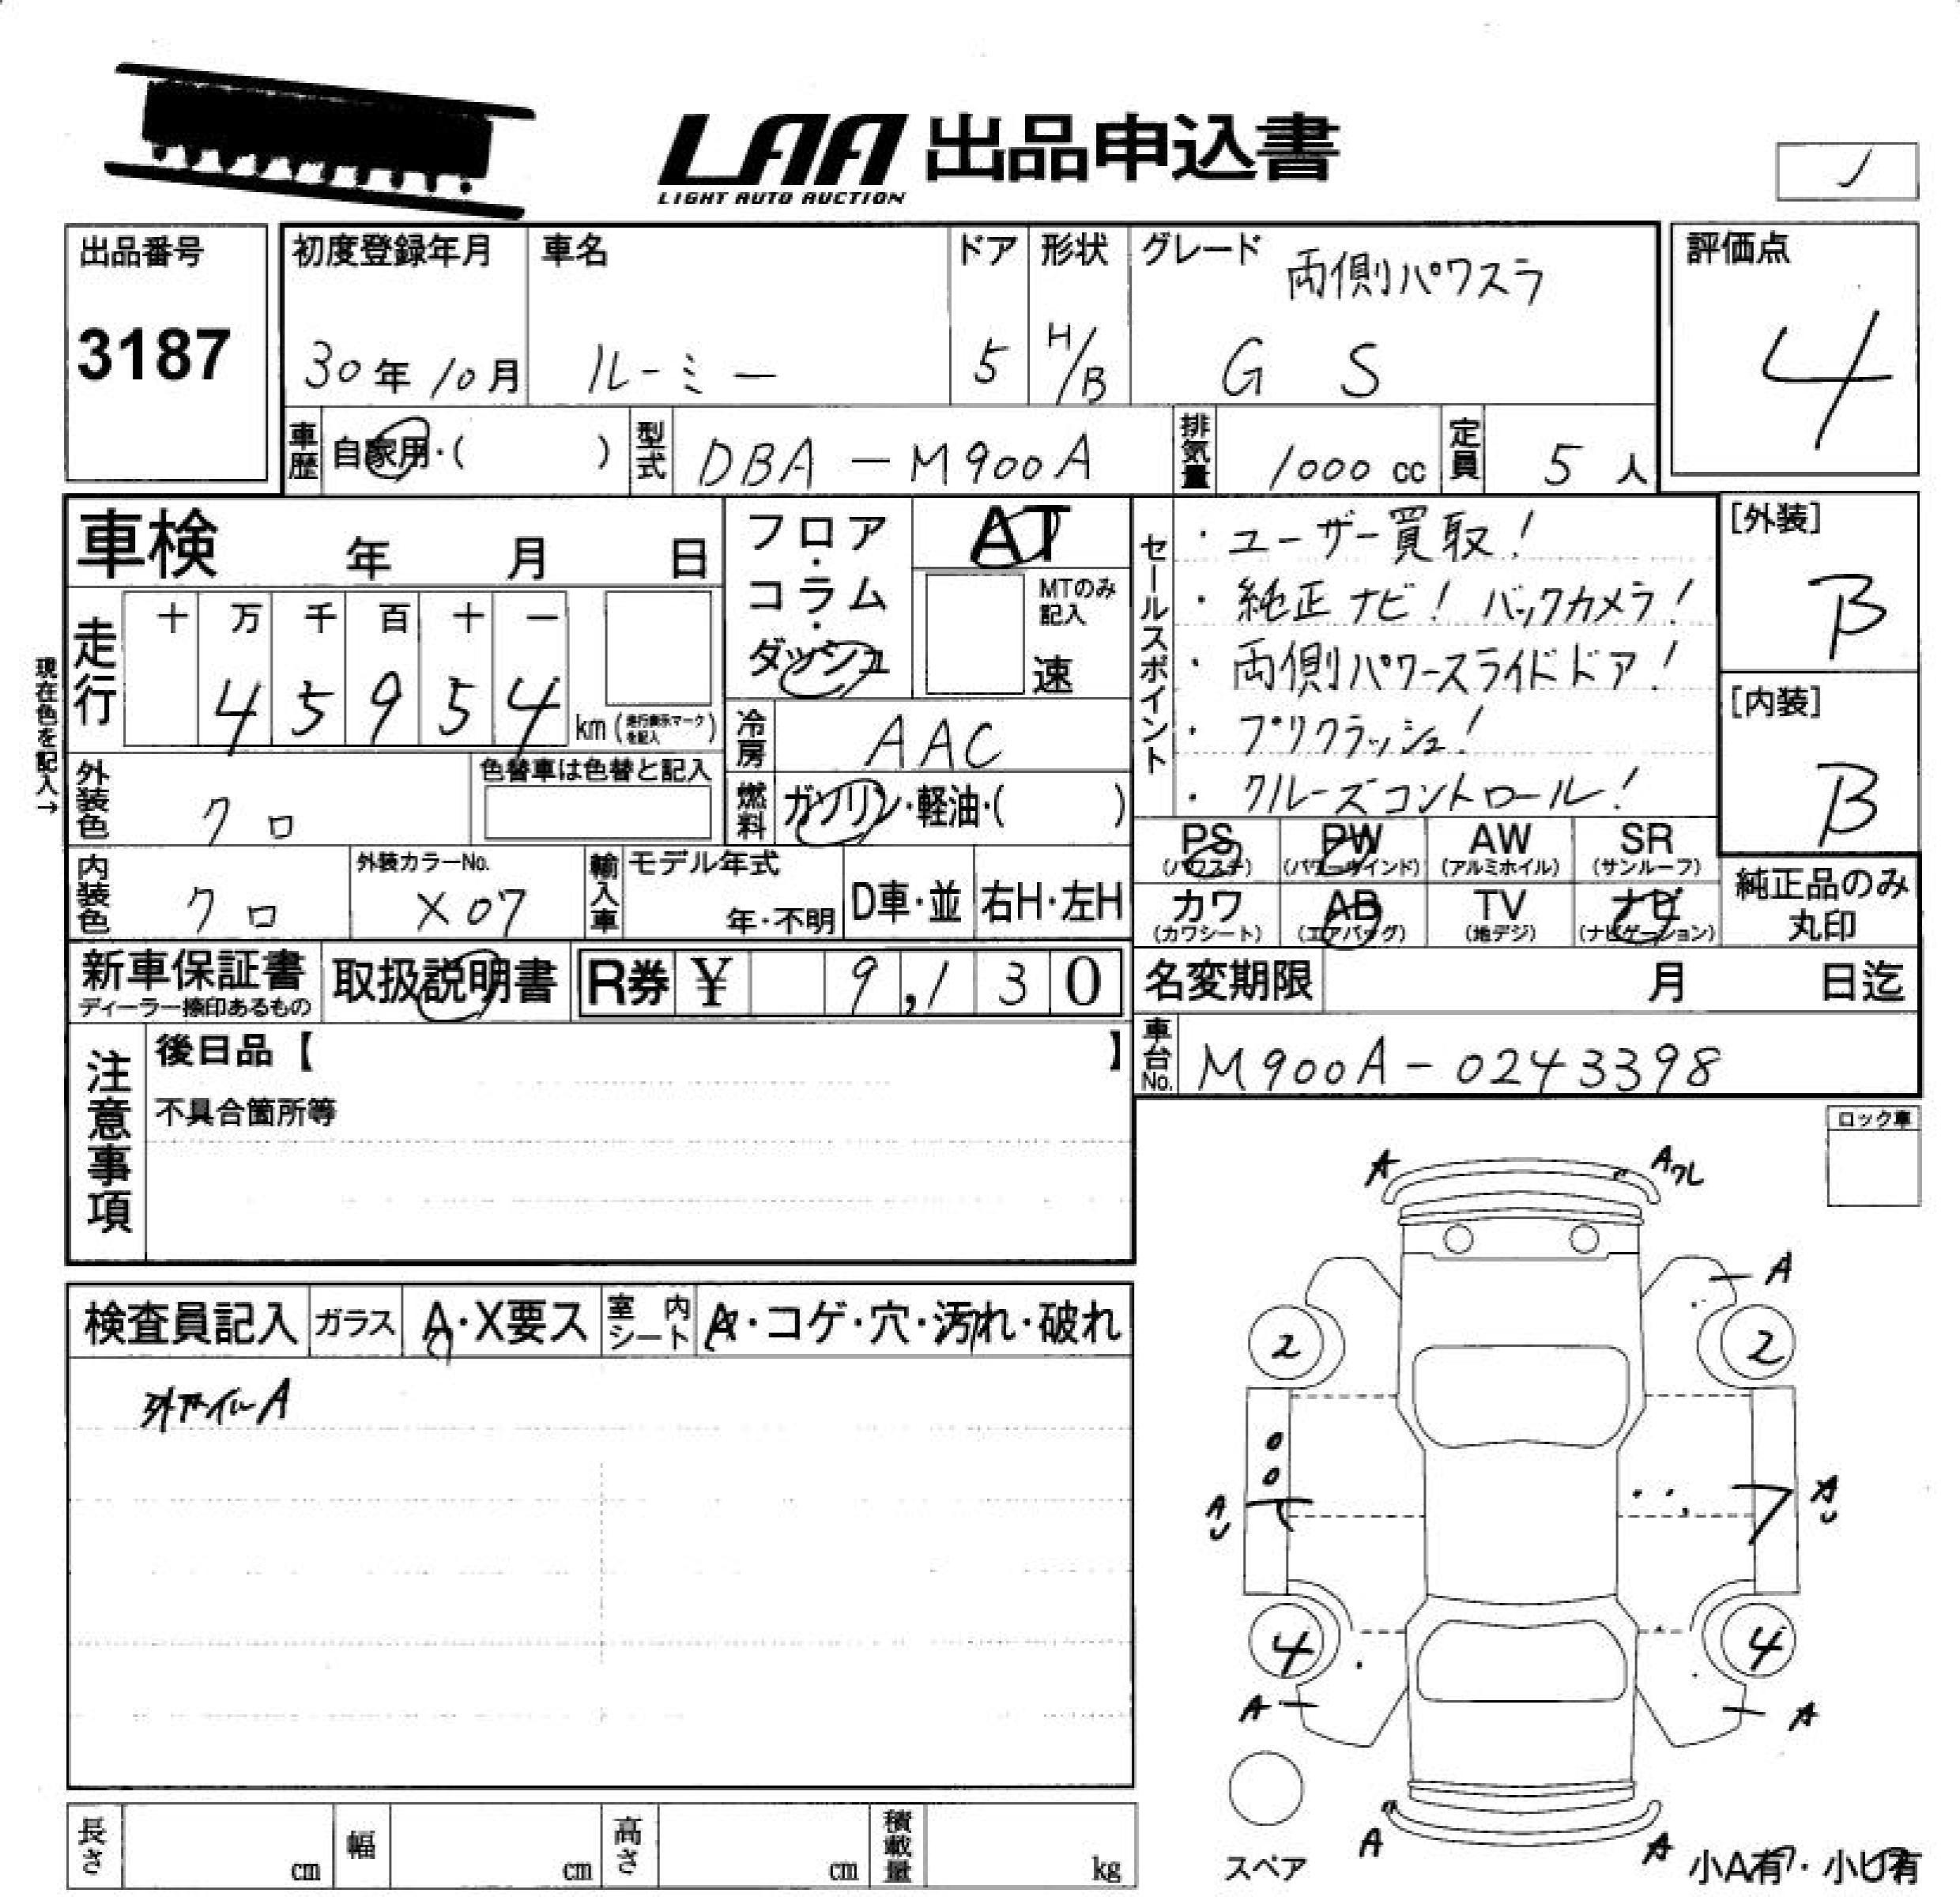 LAA 出品申込書
LIGHT AUTO AUCTION
出品番号
3187
初度登録年月
30年10月
車名
ルーミー
ドア
5
形状
H/B
グレード 両側パワスラ
G S
評価点
4
車歴 自家用・( )
型式 DBA-M900A
排気量 1000 cc
定員 5 人
車検 年 月 日
フロア・コラム・ダッシュ
AT
MTのみ記入
速
セールスポイント
・ユーザー買取!
・純正ナビ! バックカメラ!
・両側パワースライドドア!
・プリクラッシュ!
・クルーズコントロール!
[外装]
B
[内装]
B
現在色を記入→
走行
十 万 千 百 十 一
4 5 9 5 4 km (走行表示マークを記入)
冷房 AAC
燃料 ガソリン・軽油・( )
外装色 クロ
色替車は色替と記入
内装色 クロ
外装カラーNo.
X07
輸入車 モデル年式
年・不明
D車・並
右H・左H
PS (パワステ)
PW (パワーウインド)
AW (アルミホイル)
SR (サンルーフ)
カワ (カワシート)
AB (エアバッグ)
TV (地デジ)
ナビ (ナビゲーション)
純正品のみ丸印
新車保証書
ディーラー捺印あるもの
取扱説明書
R券 ¥ 9,130
名変期限 月 日迄
車台No. M900A-0243398
注意事項
後日品【 】
不具合箇所等
ロック車
検査員記入
ガラス
A・X要ス
室内シート
A・コゲ・穴・汚れ・破れ
A
A
A
2
2
A
A
4
4
A
A
A
A
スペア
小A有・小U有
長さ cm
幅 cm
高さ cm
積載量 kg